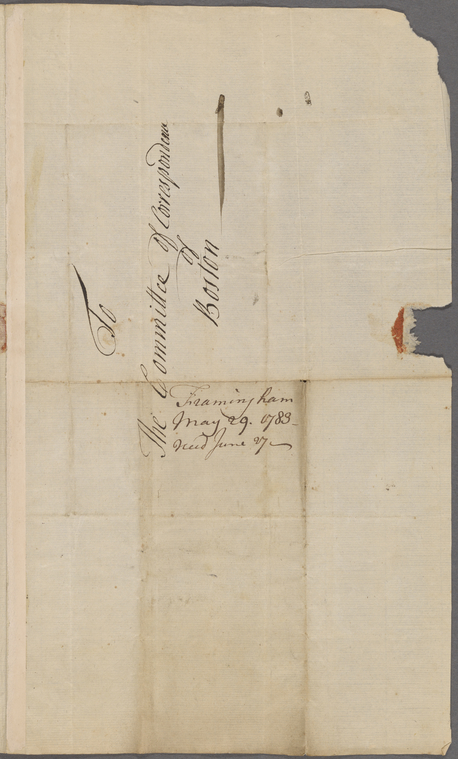 To
The Committee of Correspondence
of
Boston
Framingham
May 29. 1783
recd June 27